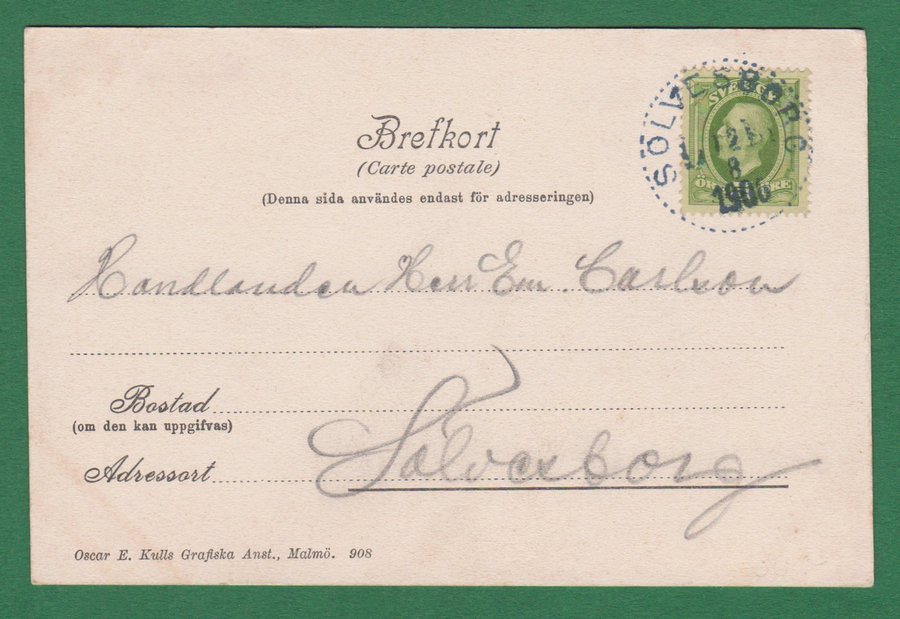 Brefkort
(Carte postale)
(Denna sida användes endast för adresseringen)
SÖLVESBORG
8
SVERIGE
Handlanden Herr Em. Carlson
Bostad
(om den kan uppgifvas)
Adressort
Sölvesborg
Oscar E. Kulls Grafiska Anst., Malmö. 908